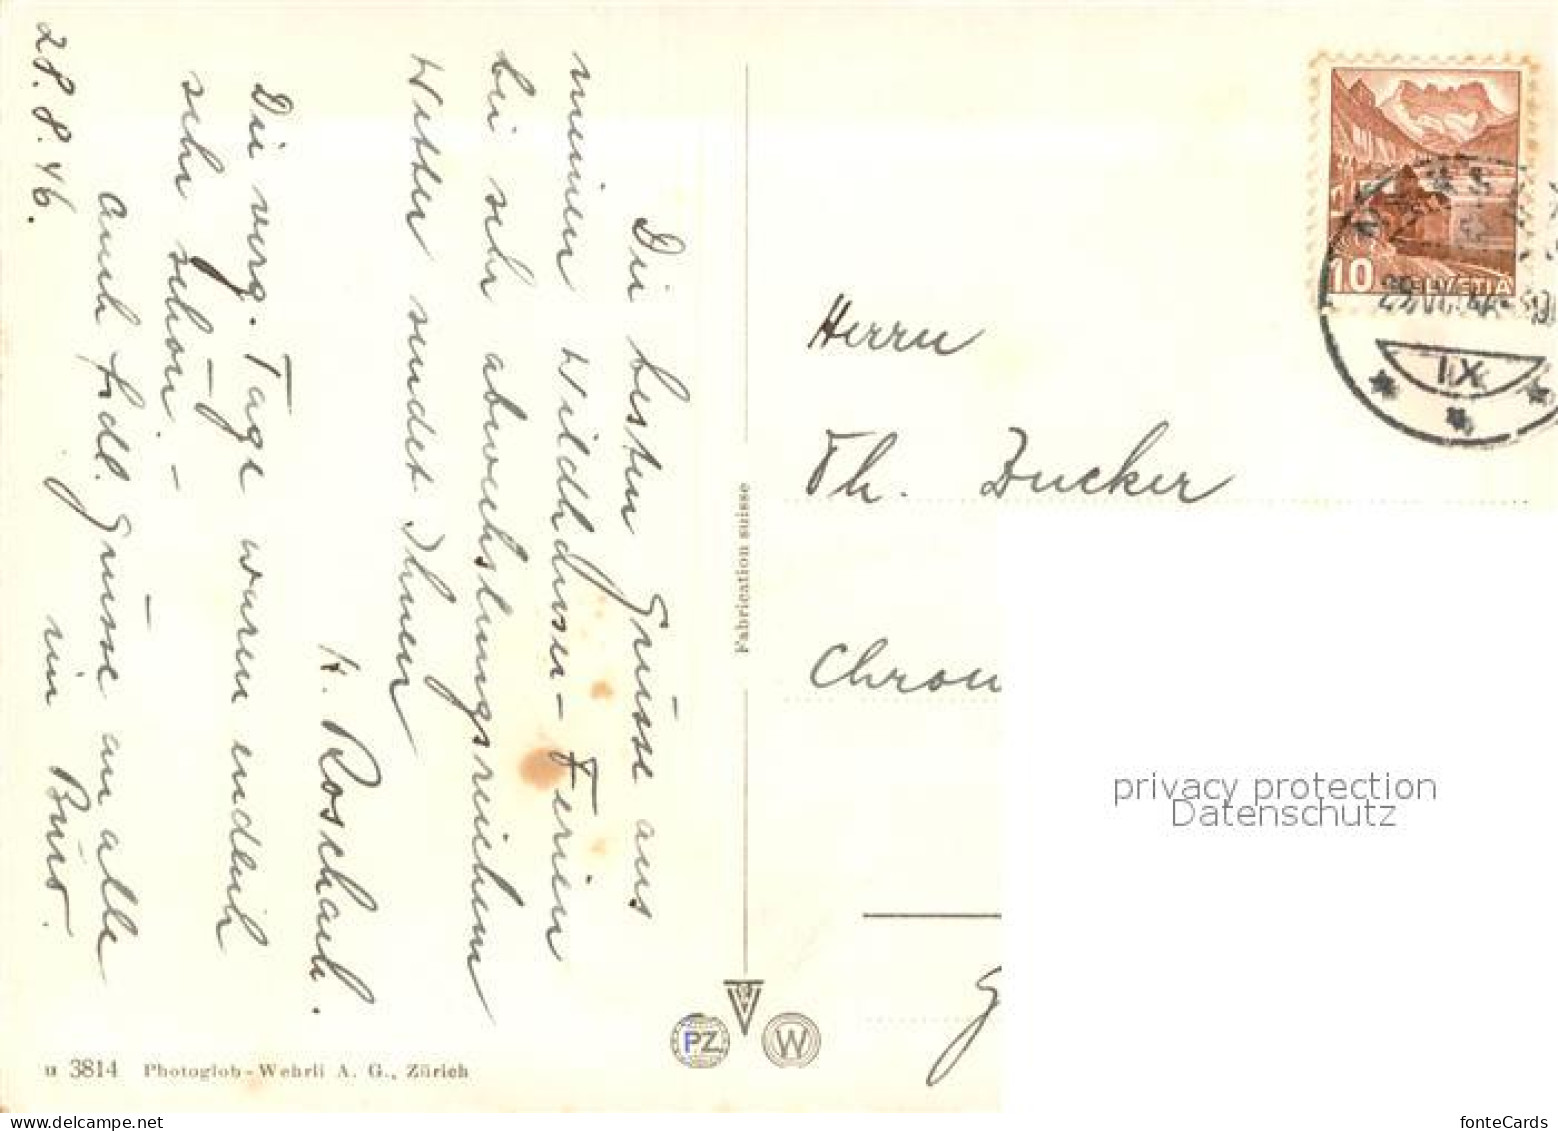 Die besten Grüsse aus
meinen Wildhauser-Ferien
bei sehr abwechslungsreichem
Wetter sendet Ihnen
H. Roschach.
Die verg. Tage waren endlich
sehr schön. -
Auch frdl. Grüsse an alle
im Büro.
28.8.46.
Fabrication suisse
PZ
W
3814 Photoglob-Wehrli A. G., Zürich
10
HELVETIA
IX
Herrn
Th. Zucker
Chron
G
privacy protection
Datenschutz
fonteCards